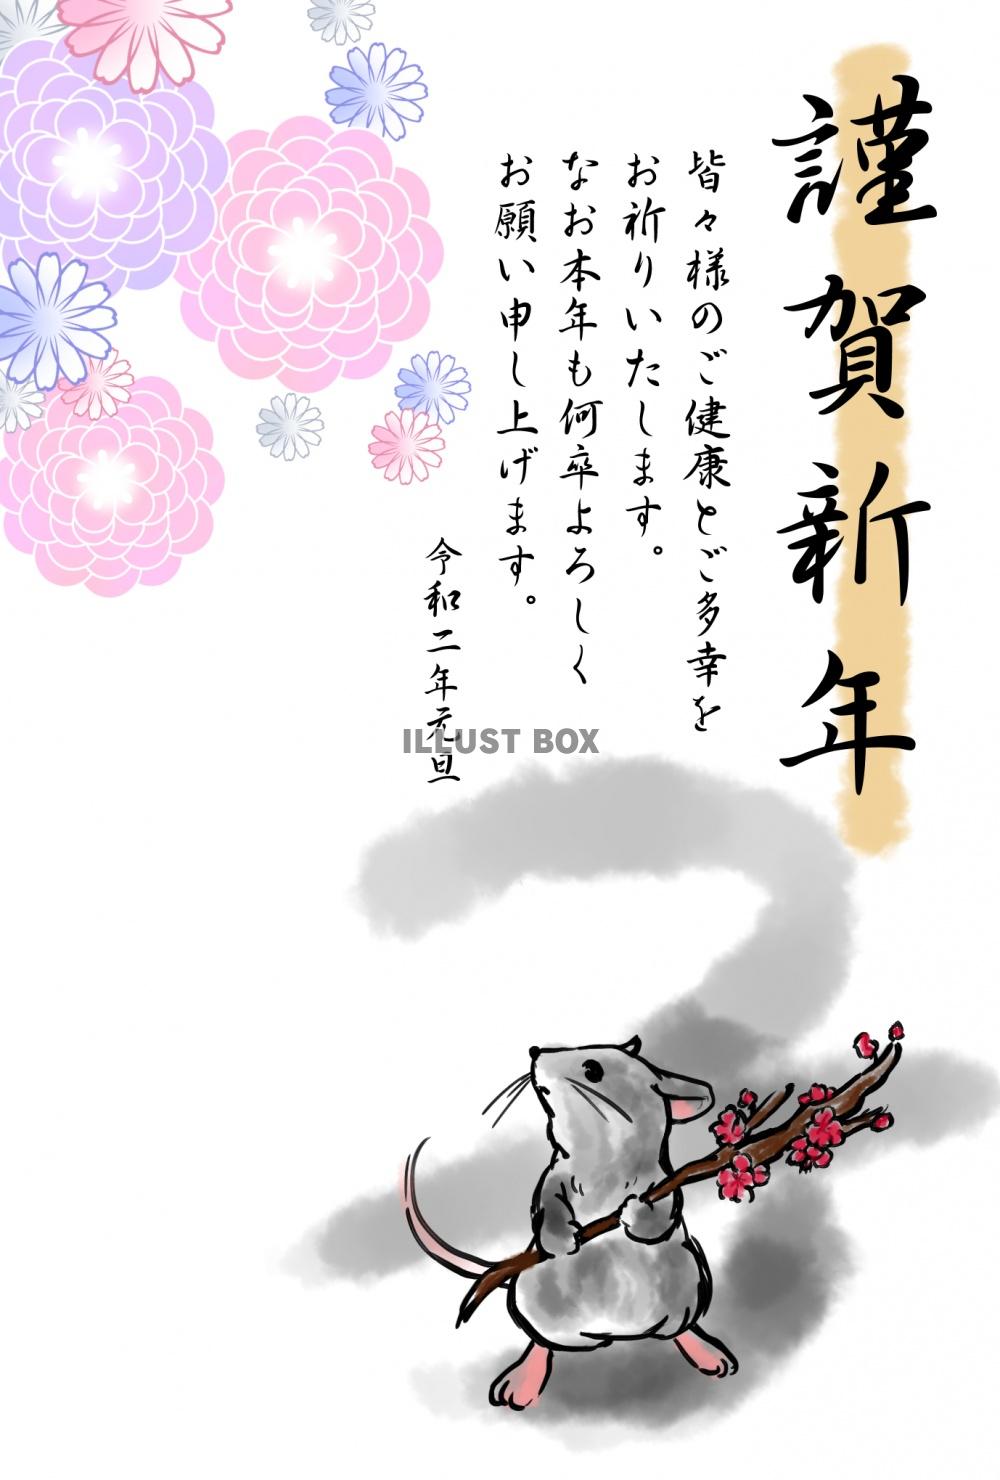 謹賀新年
皆々様のご健康とご多幸を
お祈りいたします。
なお本年も何卒よろしく
お願い申し上げます。
令和二年元旦
ILLUST BOX
子